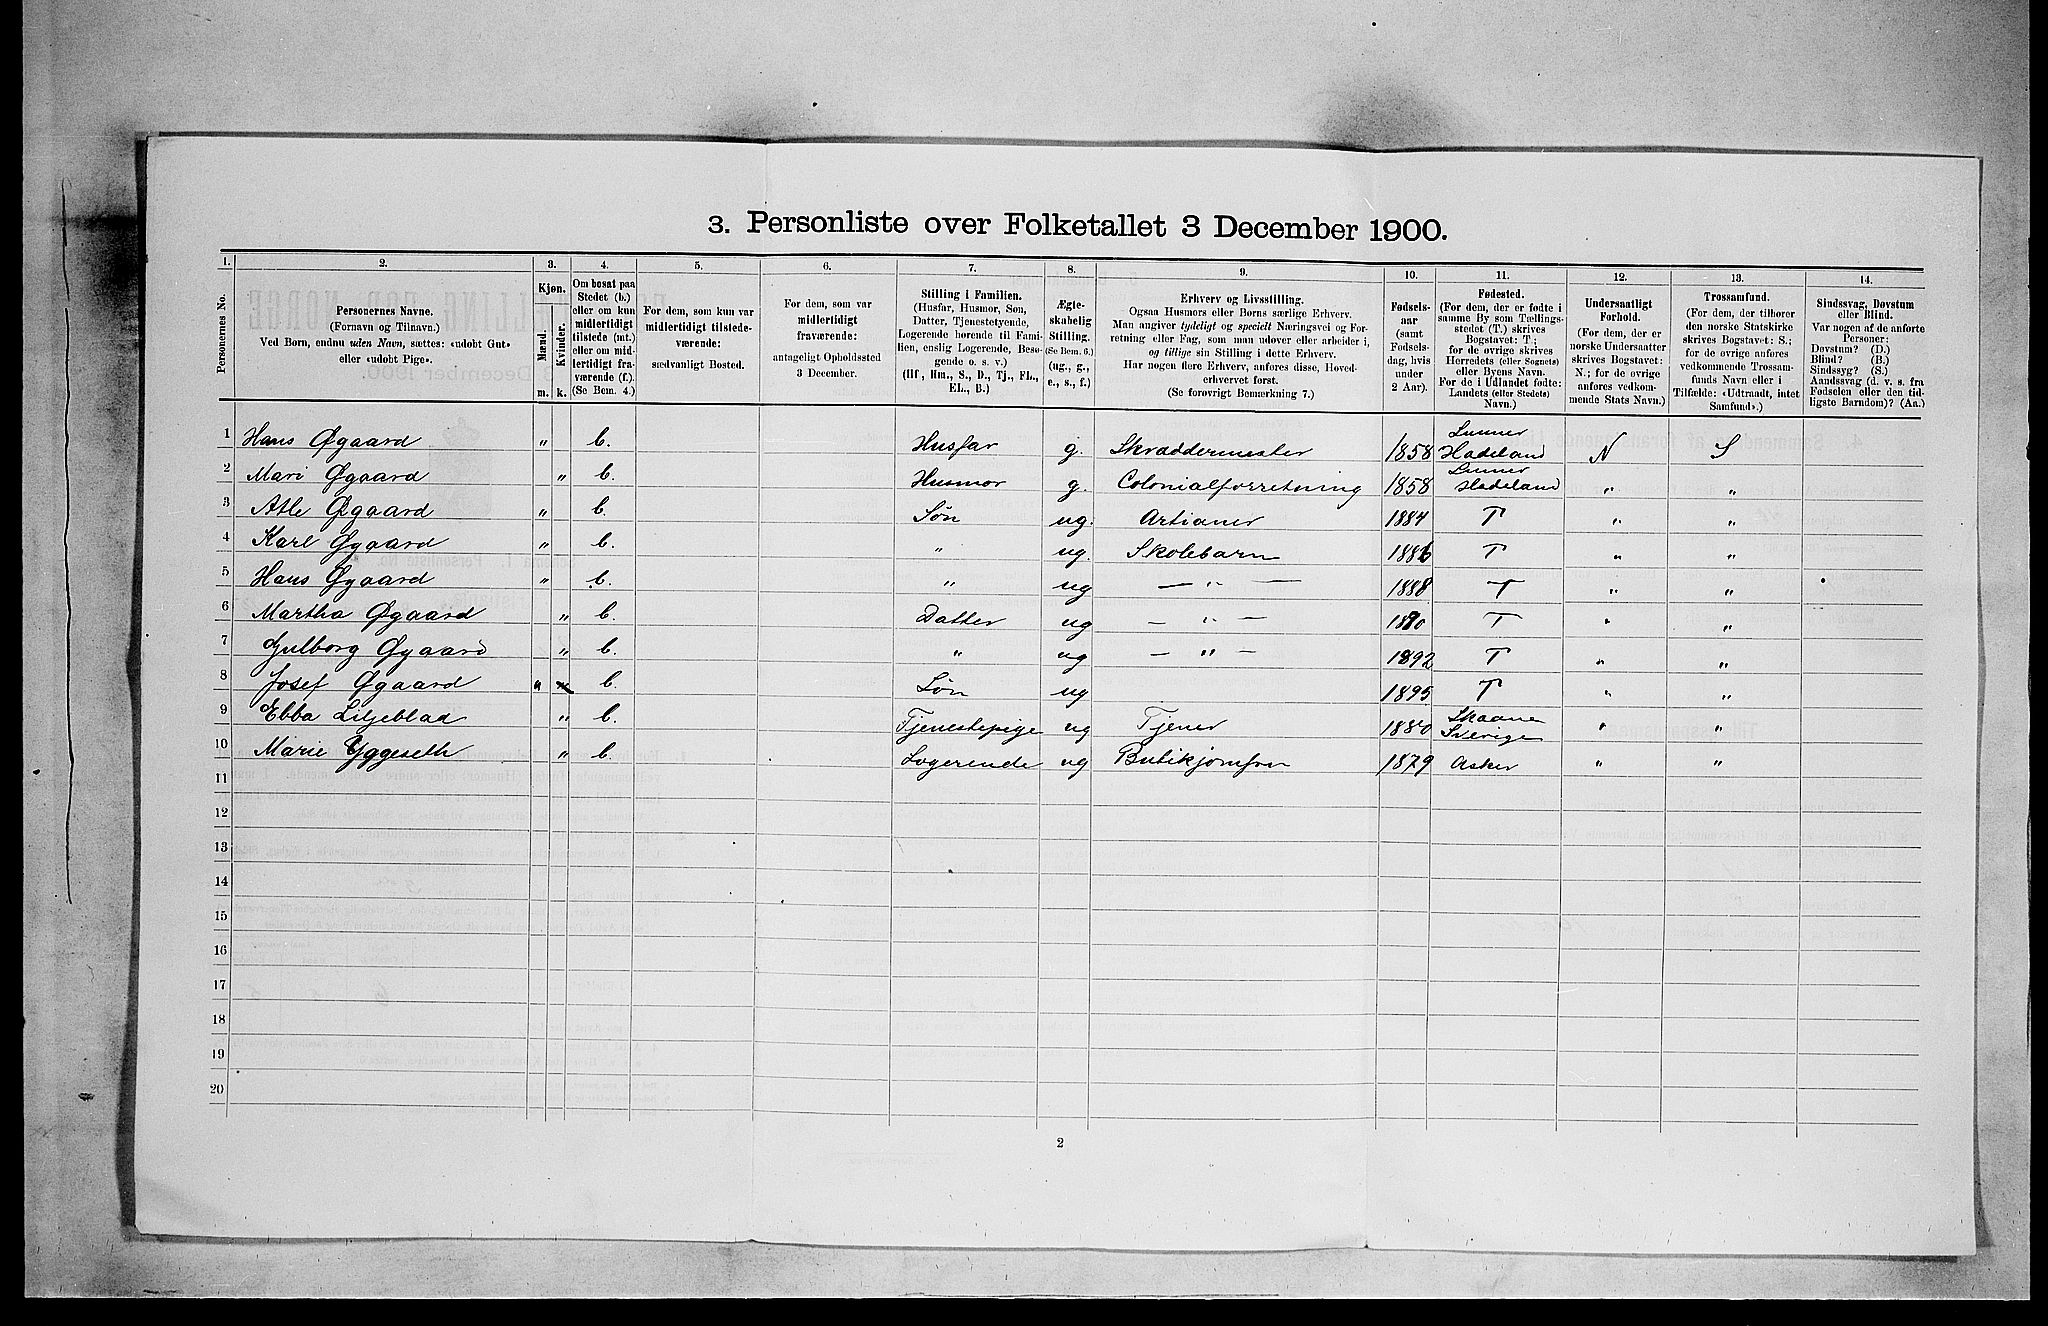 3. Personliste over Folketallet 3 December 1900.
1. 2. 3. 4. 5. 6. 7. 8. 9. 10. 11. 12. 13. 14.
Personernes No.
Personernes Navne.
(Fornavn og Tilnavn.)
Ved Børn, endnu uden Navn, sættes: «udøbt Gut»
eller «udøbt Pige».
Kjøn.
Mænd. Kvinder.
m. k.
Om bosat paa
Stedet (b.)
eller om kun
midlertidigt
tilstede (mt.)
eller om mid-
lertidigt fra-
værende (f.)
(Se Bem. 4.)
For dem, som kun var
midlertidigt tilstede-
værende:
sædvanligt Bosted.
For dem, som var
midlertidigt
fraværende:
antageligt Opholdssted
3 December.
Stilling i Familien.
(Husfar, Husmor, Søn,
Datter, Tjenestetyende,
Logerende hørende til Fami-
lien, enslig Logerende, Besø-
gende o. s. v.)
(Hf., Hm., S., D., Tj., FL.,
EL., B.)
Ægte-
skabelig
Stilling.
(Se Bem. 6.)
(ug., g.,
e., s., f.)
Erhverv og Livsstilling.
Ogsaa Husmors eller Børns særlige Erhverv.
Man angiver tydeligt og specielt Næringsvei og For-
retning eller Fag, som man udøver eller arbeider i,
og tillige sin Stilling i dette Erhverv.
Har nogen flere Erhverv, anføres disse, Hoved-
erhvervet først.
(Se forøvrigt Bemærkning 7.)
Fødsels-
aar
(samt
Fødsels-
dag, hvis
under
2 Aar).
Fødested.
(For dem, der er fødte i
samme By som Tællings-
stedet (T.) skrives
Bogstavet: T;
for de øvrige skrives
Herredets (eller Sognets)
eller Byens Navn.
For de i Udlandet fødte:
Landets (eller Stedets)
Navn.)
Undersaatligt
Forhold.
(For dem, der er
norske Undersaatter
skrives Bogstavet:
N.; for de øvrige
anføres vedkom-
mende Stats Navn.)
Trossamfund.
(For dem, der tilhører
den norske Statskirke
skrives Bogstavet: S.;
for de øvrige anføres
vedkommende Trossam-
funds Navn eller i
Tilfælde: «Udtraadt, intet
Samfund».)
Sindssvag, Døvstum
eller Blind.
Var nogen af de anførte
Personer:
Døvstum? (D.)
Blind? (B.)
Sindssyg? (S.)
Aandssvag (d. v. s. fra
Fødselen eller den tid-
ligste Barndom)? (Aa.)
1 Hans Øgaard " b. Husfar g. Skræddermester 1858 Lunner Hadeland N S
2 Mari Øgaard " b. Husmor g. Colonialforretning 1858 Lunner Hadeland " "
3 Atle Øgaard " b. Søn ug. Artianer 1884 T " "
4 Karl Øgaard " b. " ug. Skolebarn 1886 T " "
5 Hans Øgaard " b. " ug — " — 1888 T " "
6 Martha Øgaard " b. Datter ug — " — 1890 T " "
7 Gulborg Øgaard " b. " ug — " — 1892 T " "
8 Josef Øgaard " b. Søn ug 1895 T " "
9 Ebba Liljeblad " b. Tjenestepige ug Tjener 1880 Skaane Sverige " "
10 Marie Yggeseth " b. Logerende ug Butikjomfru 1879 Asker " "
11
12
13
14
15
16
17
18
19
20
2